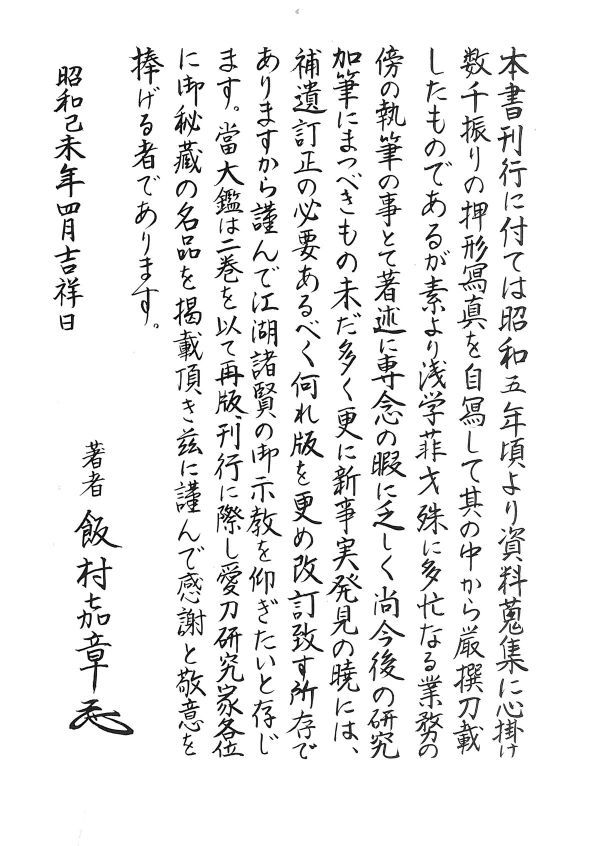 本書刊行に付ては昭和五年頃より資料蒐集に心掛け
数千振りの押形寫真を自寫して其の中から厳撰刀載
したものであるが素より浅学菲才殊に多忙なる業務の
傍の執筆の事とて著述に専念の暇に乏しく尚今後の研究
加筆にまつべきもの未だ多く更に新事実発見の暁には、
補遺訂正の必要あるべく何れ版を更め改訂致す所存で
ありますから謹んで江湖諸賢の御示教を仰ぎたいと存じ
ます。當大鑑は二巻を以て再版、刊行に際し愛刀研究家各位
に御秘蔵の名品を掲載頂き茲に謹んで感謝と敬意を
捧げる者であります。
昭和己未年四月吉祥日
著者 飯村嘉章